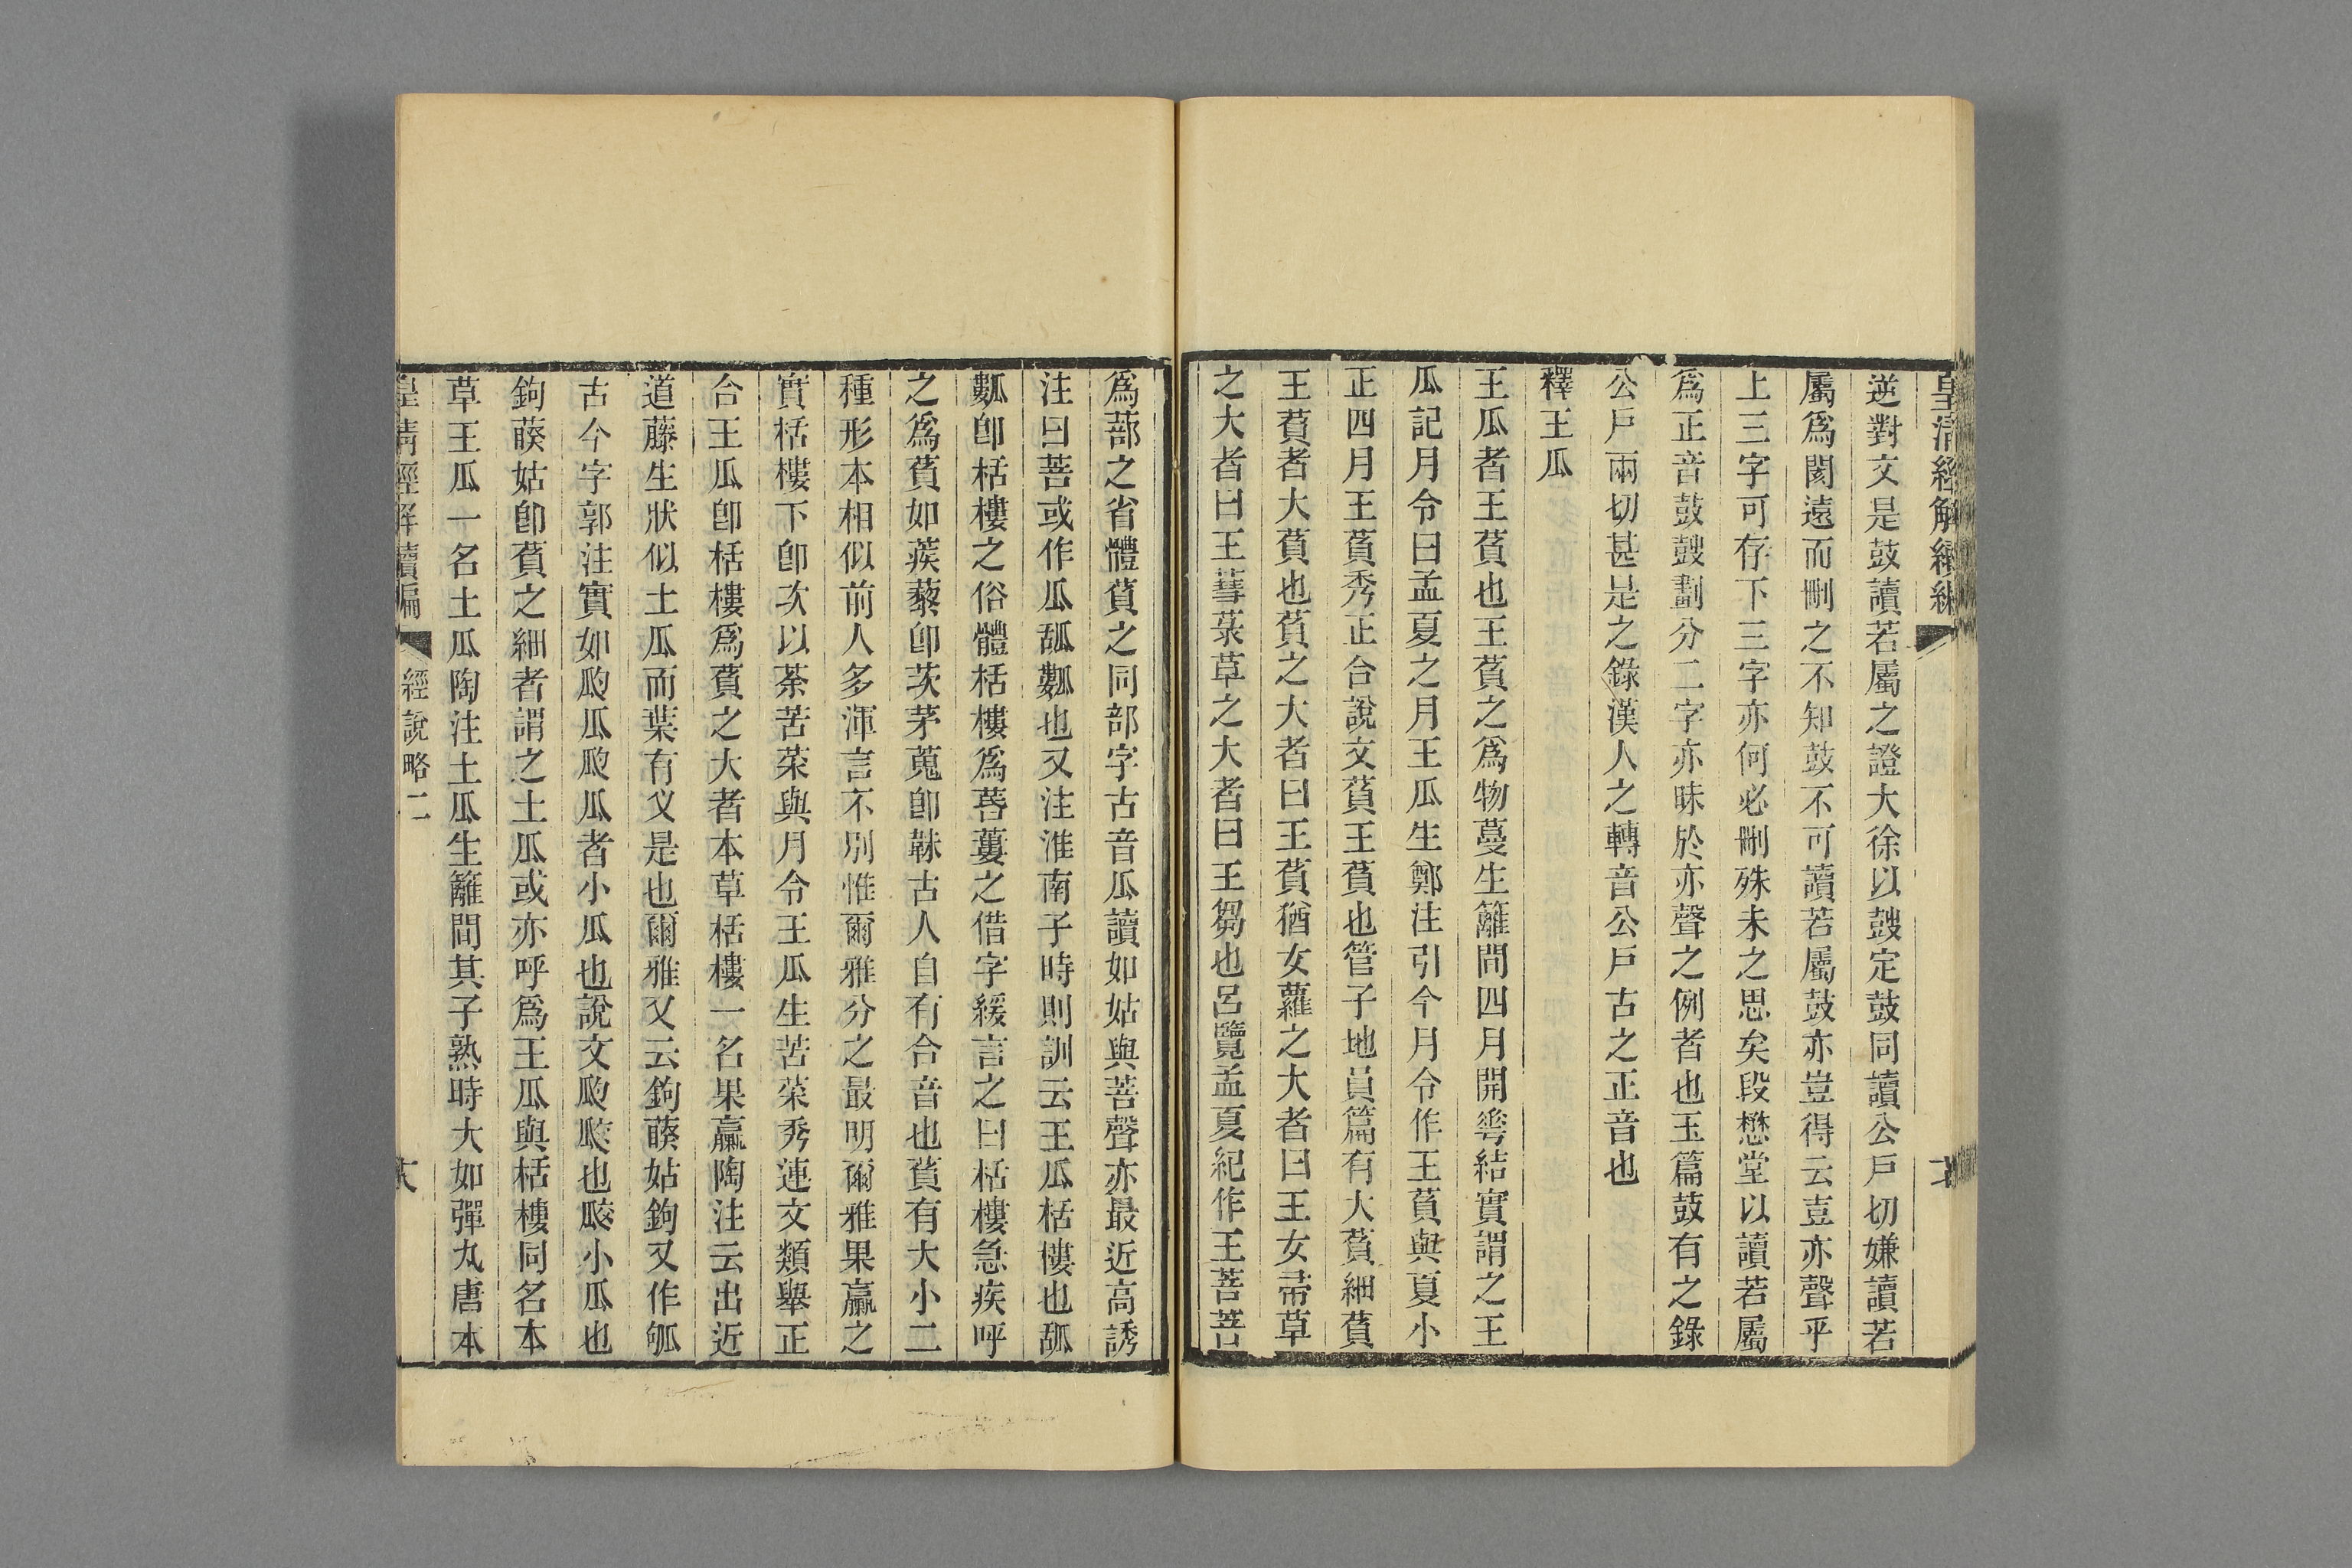 皇清經解續編
逆對文是鼓讀若屬之證大徐以鼓定鼓同讀公戶切嫌讀若
屬爲闊遠而刪之不知鼓不可讀若屬鼓亦豈得云壴亦聲乎
上三字可存下三字亦何必刪殊未之思矣段懋堂以讀若屬
爲正音鼓鼔劃分二字亦昧於亦聲之例者也玉篇鼓有之錄
公戶兩切甚是之錄漢人之轉音公戶古之正音也
釋王瓜
王瓜者王萯也王萯之爲物蔓生籬間四月開蕚結實謂之王
瓜記月令曰孟夏之月王瓜生鄭注引今月令作王萯與夏小
正四月王萯秀正合說文萯王萯也管子地員篇有大萯細萯
王萯者大萯也萯之大者曰王萯猶女蘿之大者曰王女帚草
之大者曰王蔧菉草之大者曰王芻也呂覽孟夏紀作王菩菩
爲蔀之省體萯之同部字古音瓜讀如姑與菩聲亦最近高誘
注曰菩或作瓜㼋㼖也又注淮南子時則訓云王瓜栝樓也㼋
㼖卽栝樓之俗體栝樓爲菩蔞之借字緩言之曰栝樓急疾呼
之爲萯如蒺藜卽茨茅蒐卽韎古人自有合音也萯有大小二
種形本相似前人多渾言不別惟爾雅分之最明爾雅果臝之
實栝樓下卽次以荼苦菜與月令王瓜生苦菜秀連文類舉正
合王瓜卽栝樓爲萯之大者本草栝樓一名果臝陶注云出近
道藤生狀似土瓜而葉有义是也爾雅又云鉤藈姑鉤又作㼋
古今字郭注實如瓝瓜瓝瓜者小瓜也說文瓝㼎也㼎小瓜也
鉤藈姑卽萯之細者謂之土瓜或亦呼爲王瓜與栝樓同名本
草王瓜一名土瓜陶注土瓜生籬間其子熟時大如彈丸唐本
皇淸經解續編
經說略二